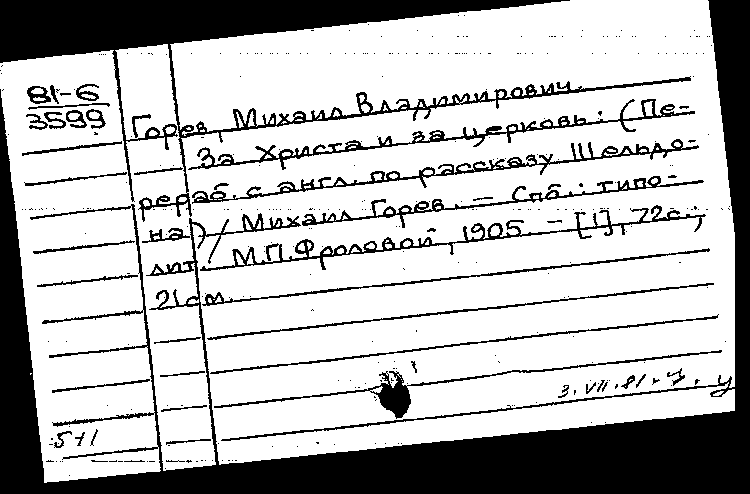 81-6
3599
Горев, Михаил Владимирович.
За Христа и за церковь: (Пе-
рераб. с англ. по рассказу Шельдо-
на) / Михаил Горев. – Спб.: типо-
лит. М.П.Фроловой, 1905 – [1], 72с.;
21см.
3.VII.81.